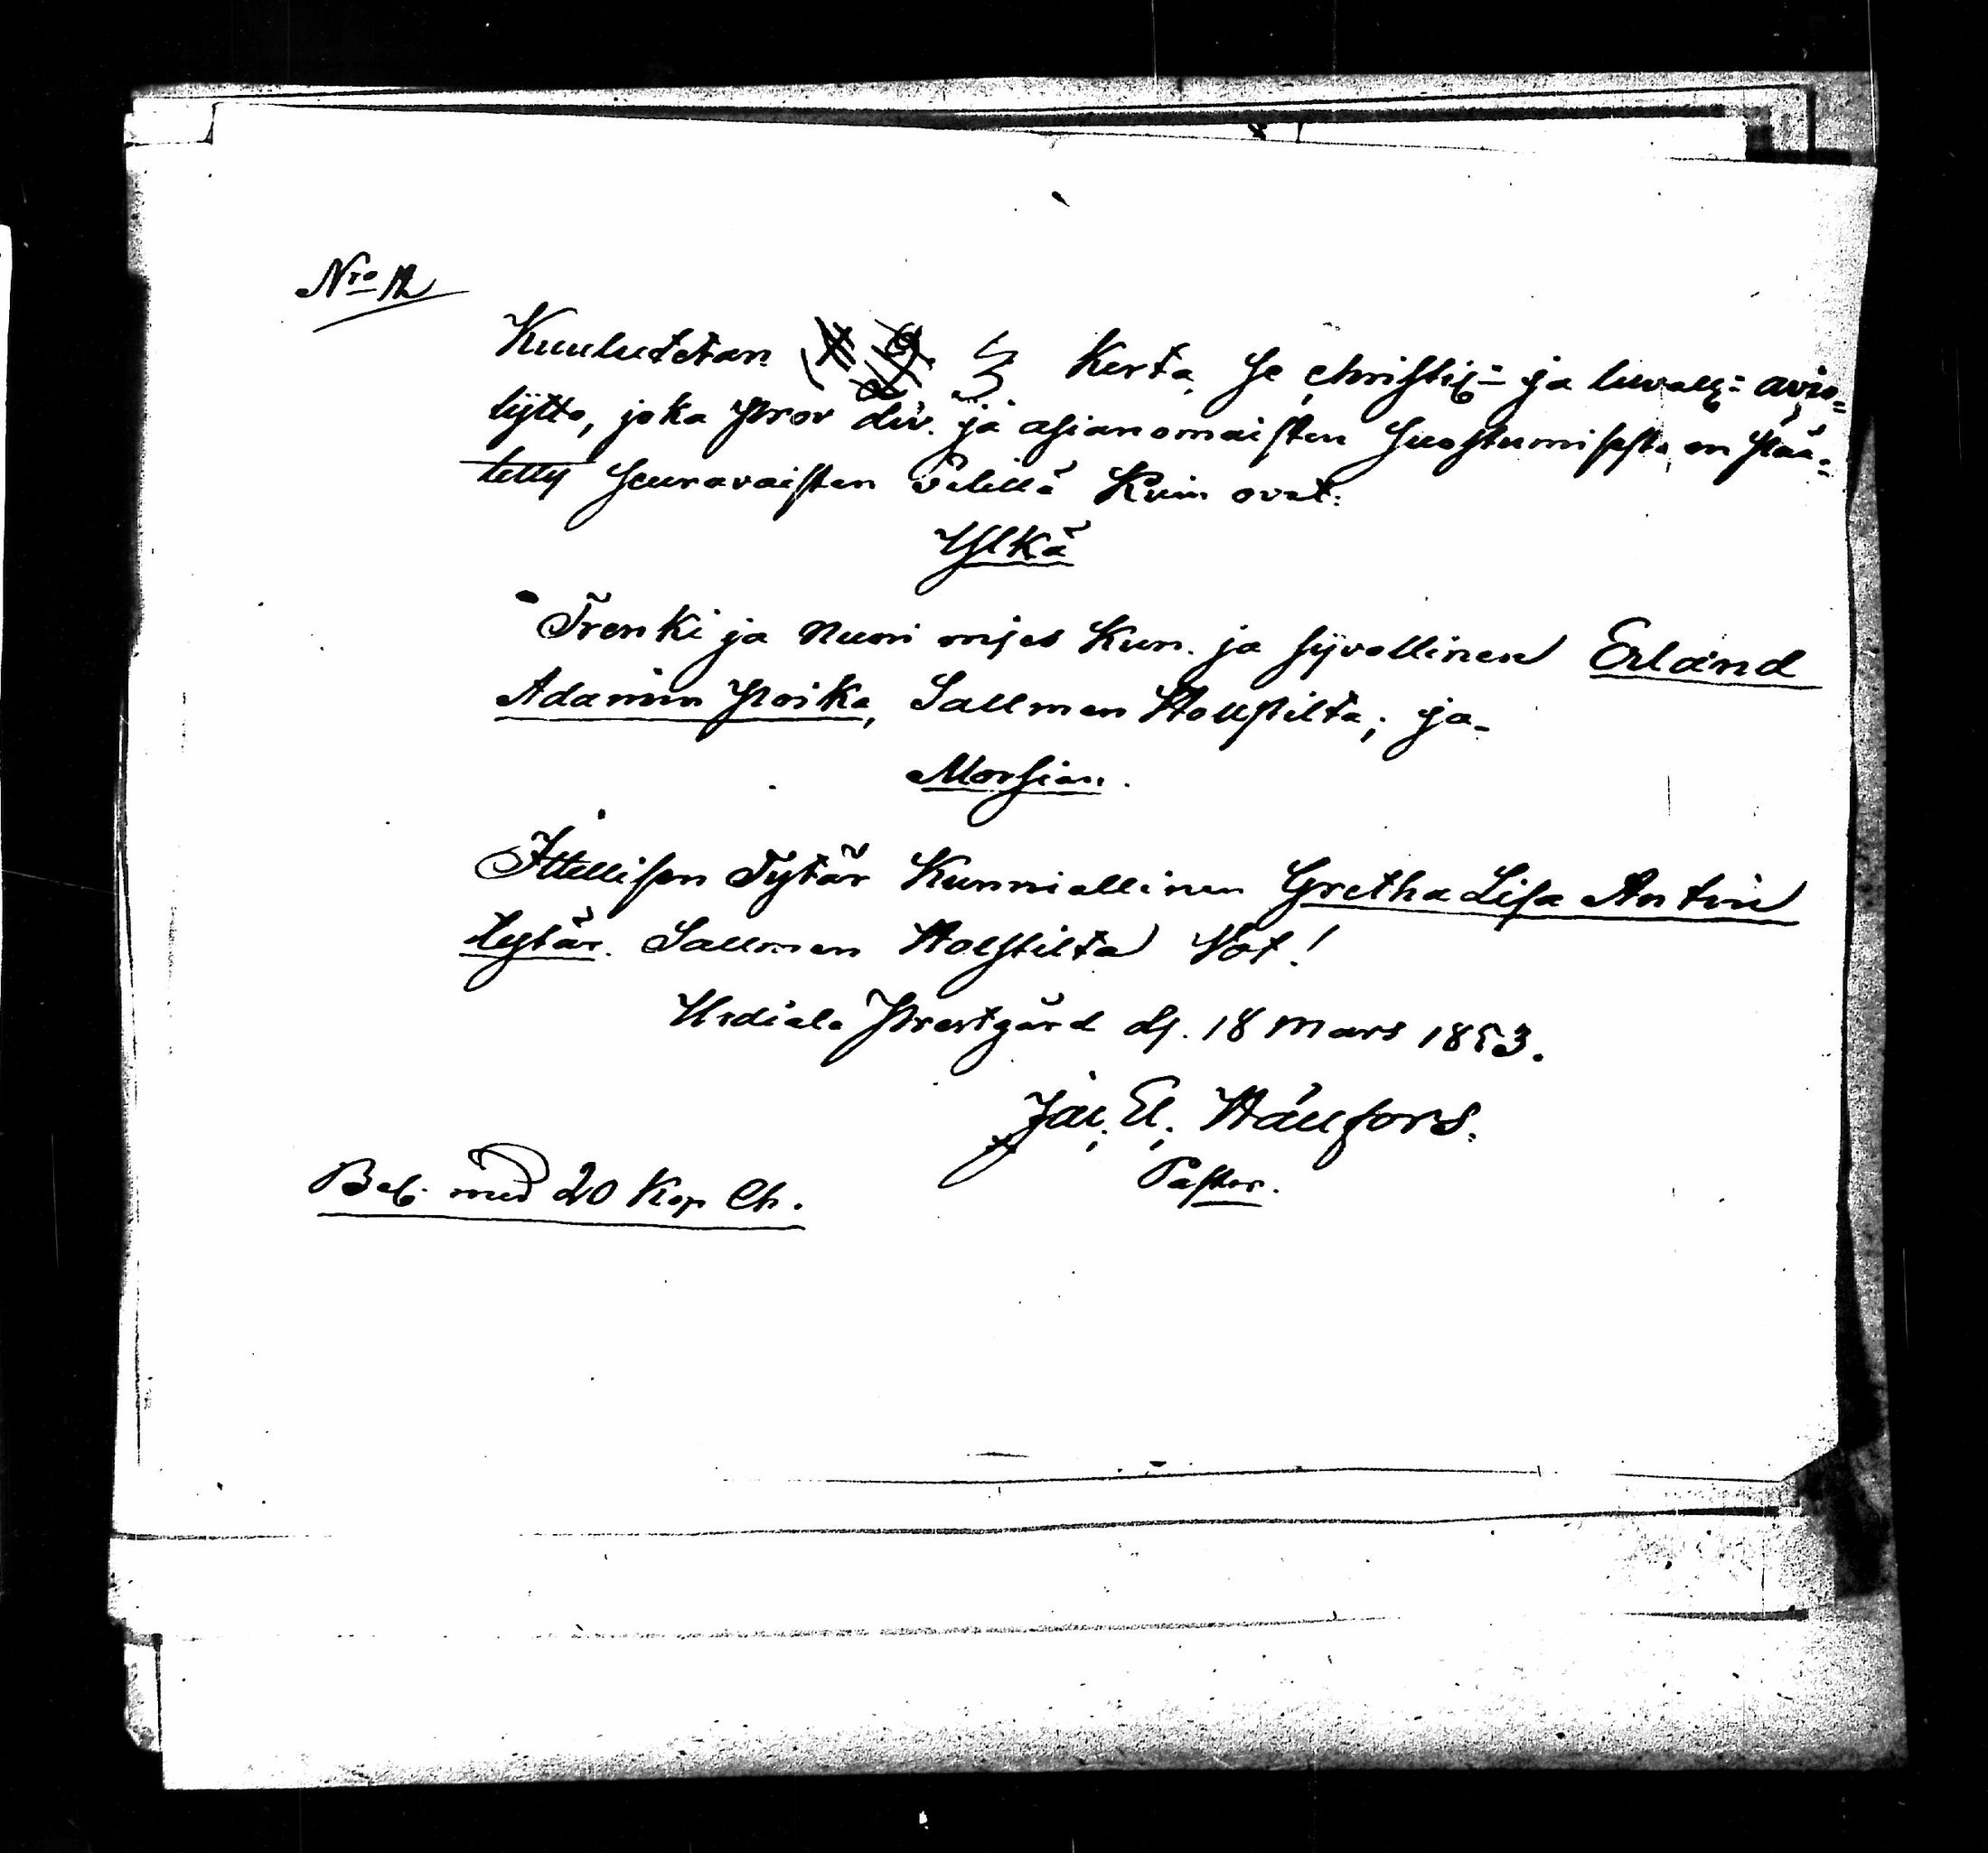 Nro 12
Kuulutetan 3 Kerta se christil= ja luvall= avio=
lijtto, joka prov div. ja asianomaisten suostumisesta on pää=
tetty seuravaisten välillä Kuin ovat:
Ylkä
Trenki ja Nuori mjes Kun. ja sijvollinen Erland
Adamin poika, Sallmen Hollstilta; ja
Morsian.
Ittellisen Tytär Kunniallinen Gretha Lisa Antin
tytär. Sallmen Hollstilta Not!
Urdiala Prestgård d. 18 Mars 1853.
Hällfors.
Pastor.
Bel. med 20 Kop